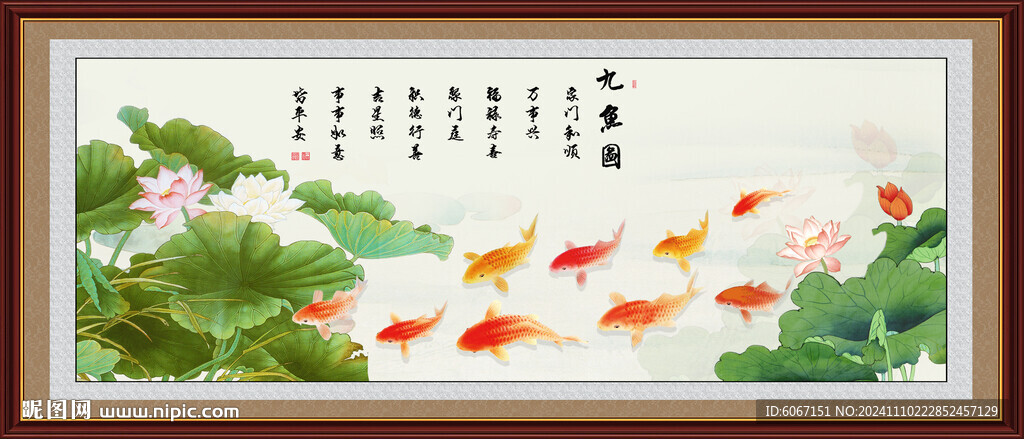 九魚圖
家门和順
万事兴
福禄寿喜
聚门庭
积德行善
吉星照
事事如意
皆平安
昵图网 www.nipic.com
ID:6067151 NO:20241110222852457129